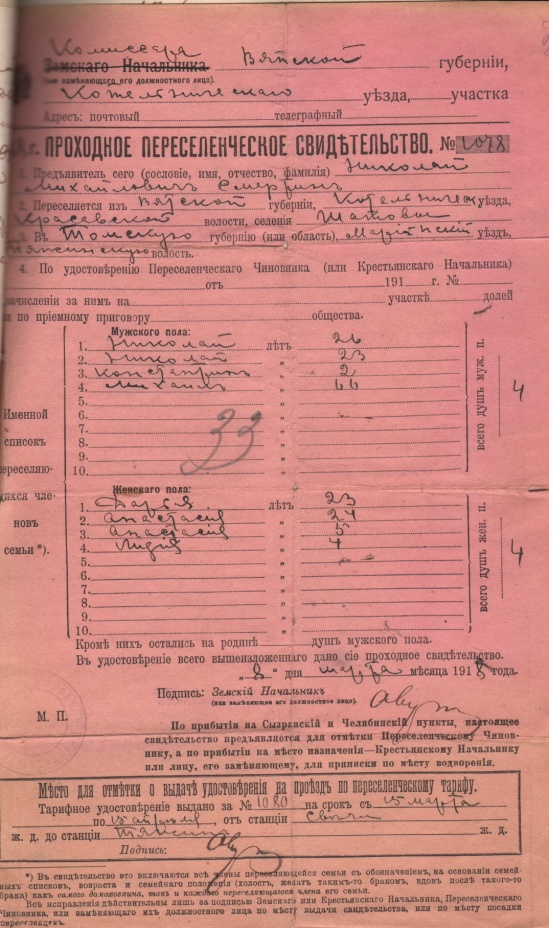 Комиссара
Земскаго Начальника Вятской губерніи,
(или замѣняющаго его должностного лица).
Котельническаго уѣзда, участка
Адресъ: почтовый телеграфный
г. ПРОХОДНОЕ ПЕРЕСЕЛЕНЧЕСКОЕ СВИДѢТЕЛЬСТВО. № 1078
1. Предъявитель сего (сословіе, имя, отчество, фамилія) Николай
Михайловичъ Смертинъ
2. Переселяется изъ Вятской губерніи, Котельническ уѣзда,
Красавской волости, селенія
3. Въ Томскую губернію (или область), Маріинскій уѣздъ,
Тяжинскую волость.
4. По удостовѣренію Переселенческаго Чиновника (или Крестьянскаго Начальника)
отъ 191 г. №
зачисленіи за нимъ на участкѣ долей
и по пріемному приговору общества.
Именной
списокъ
переселяю-
щихся чле-
новъ
семьи *).
Мужского пола:
1. Николай лѣтъ 26
2. Николай „ 23
3. Константинъ „ 2
4. Михаилъ „ 66
5. „
6. „
7. „
8. „
9. „
10. „
33
всего душъ муж. п. 4
Женскаго пола:
1. Дарья лѣтъ 23
2. Анастасія „ 24
3. Анастасія „
4. Лидія „ 4
5. „
6. „
7. „
8. „
9. „
10. „
всего душъ жен. п. 4
Кромѣ нихъ остались на родинѣ душъ мужского пола.
Въ удостовѣреніе всего вышеизложеннаго дано сіе проходное свидѣтельство.
„ 8 „ дня марта мѣсяца 1918 года.
Подпись: Земскій Начальникъ
(или замѣняющее его должностное лицо).
М. П.
По прибытіи на Сызранскій и Челябинскій пункты, настоящее
свидѣтельство предъявляется для отмѣтки Переселенческому Чинов-
нику, а по прибытіи на мѣсто назначенія—Крестьянскому Начальнику
или лицу, его замѣняющему, для приписки по мѣсту водворенія.
Мѣсто для отмѣтки о выдачѣ удостовѣренія на проѣздъ по переселенческому тарифу.
Тарифное удостовѣреніе выдано за № 1080 на срокъ съ 15 марта
по 15 апрѣля, отъ станціи Свѣча
ж. д. до станціи Тяжинъ ж. д.
Подпись:
*) Въ свидѣтельство это включаются всѣ члены переселяющейся семьи съ обозначеніемъ, на основаніи семей-
ныхъ списковъ, возраста и семейнаго положенія (холостъ, женатъ такимъ-то бракомъ, вдовъ послѣ такого-то
брака) какъ самого домохозяина, такъ и каждаго переселяющагося члена его семьи.
Всѣ исправленія дѣйствительны лишь за подписью Земскаго или Крестьянскаго Начальника, Переселенческаго
Чиновника, или замѣняющаго ихъ должностного лица по мѣсту выдачи свидѣтельства, или по мѣсту посадки
переселенцевъ.